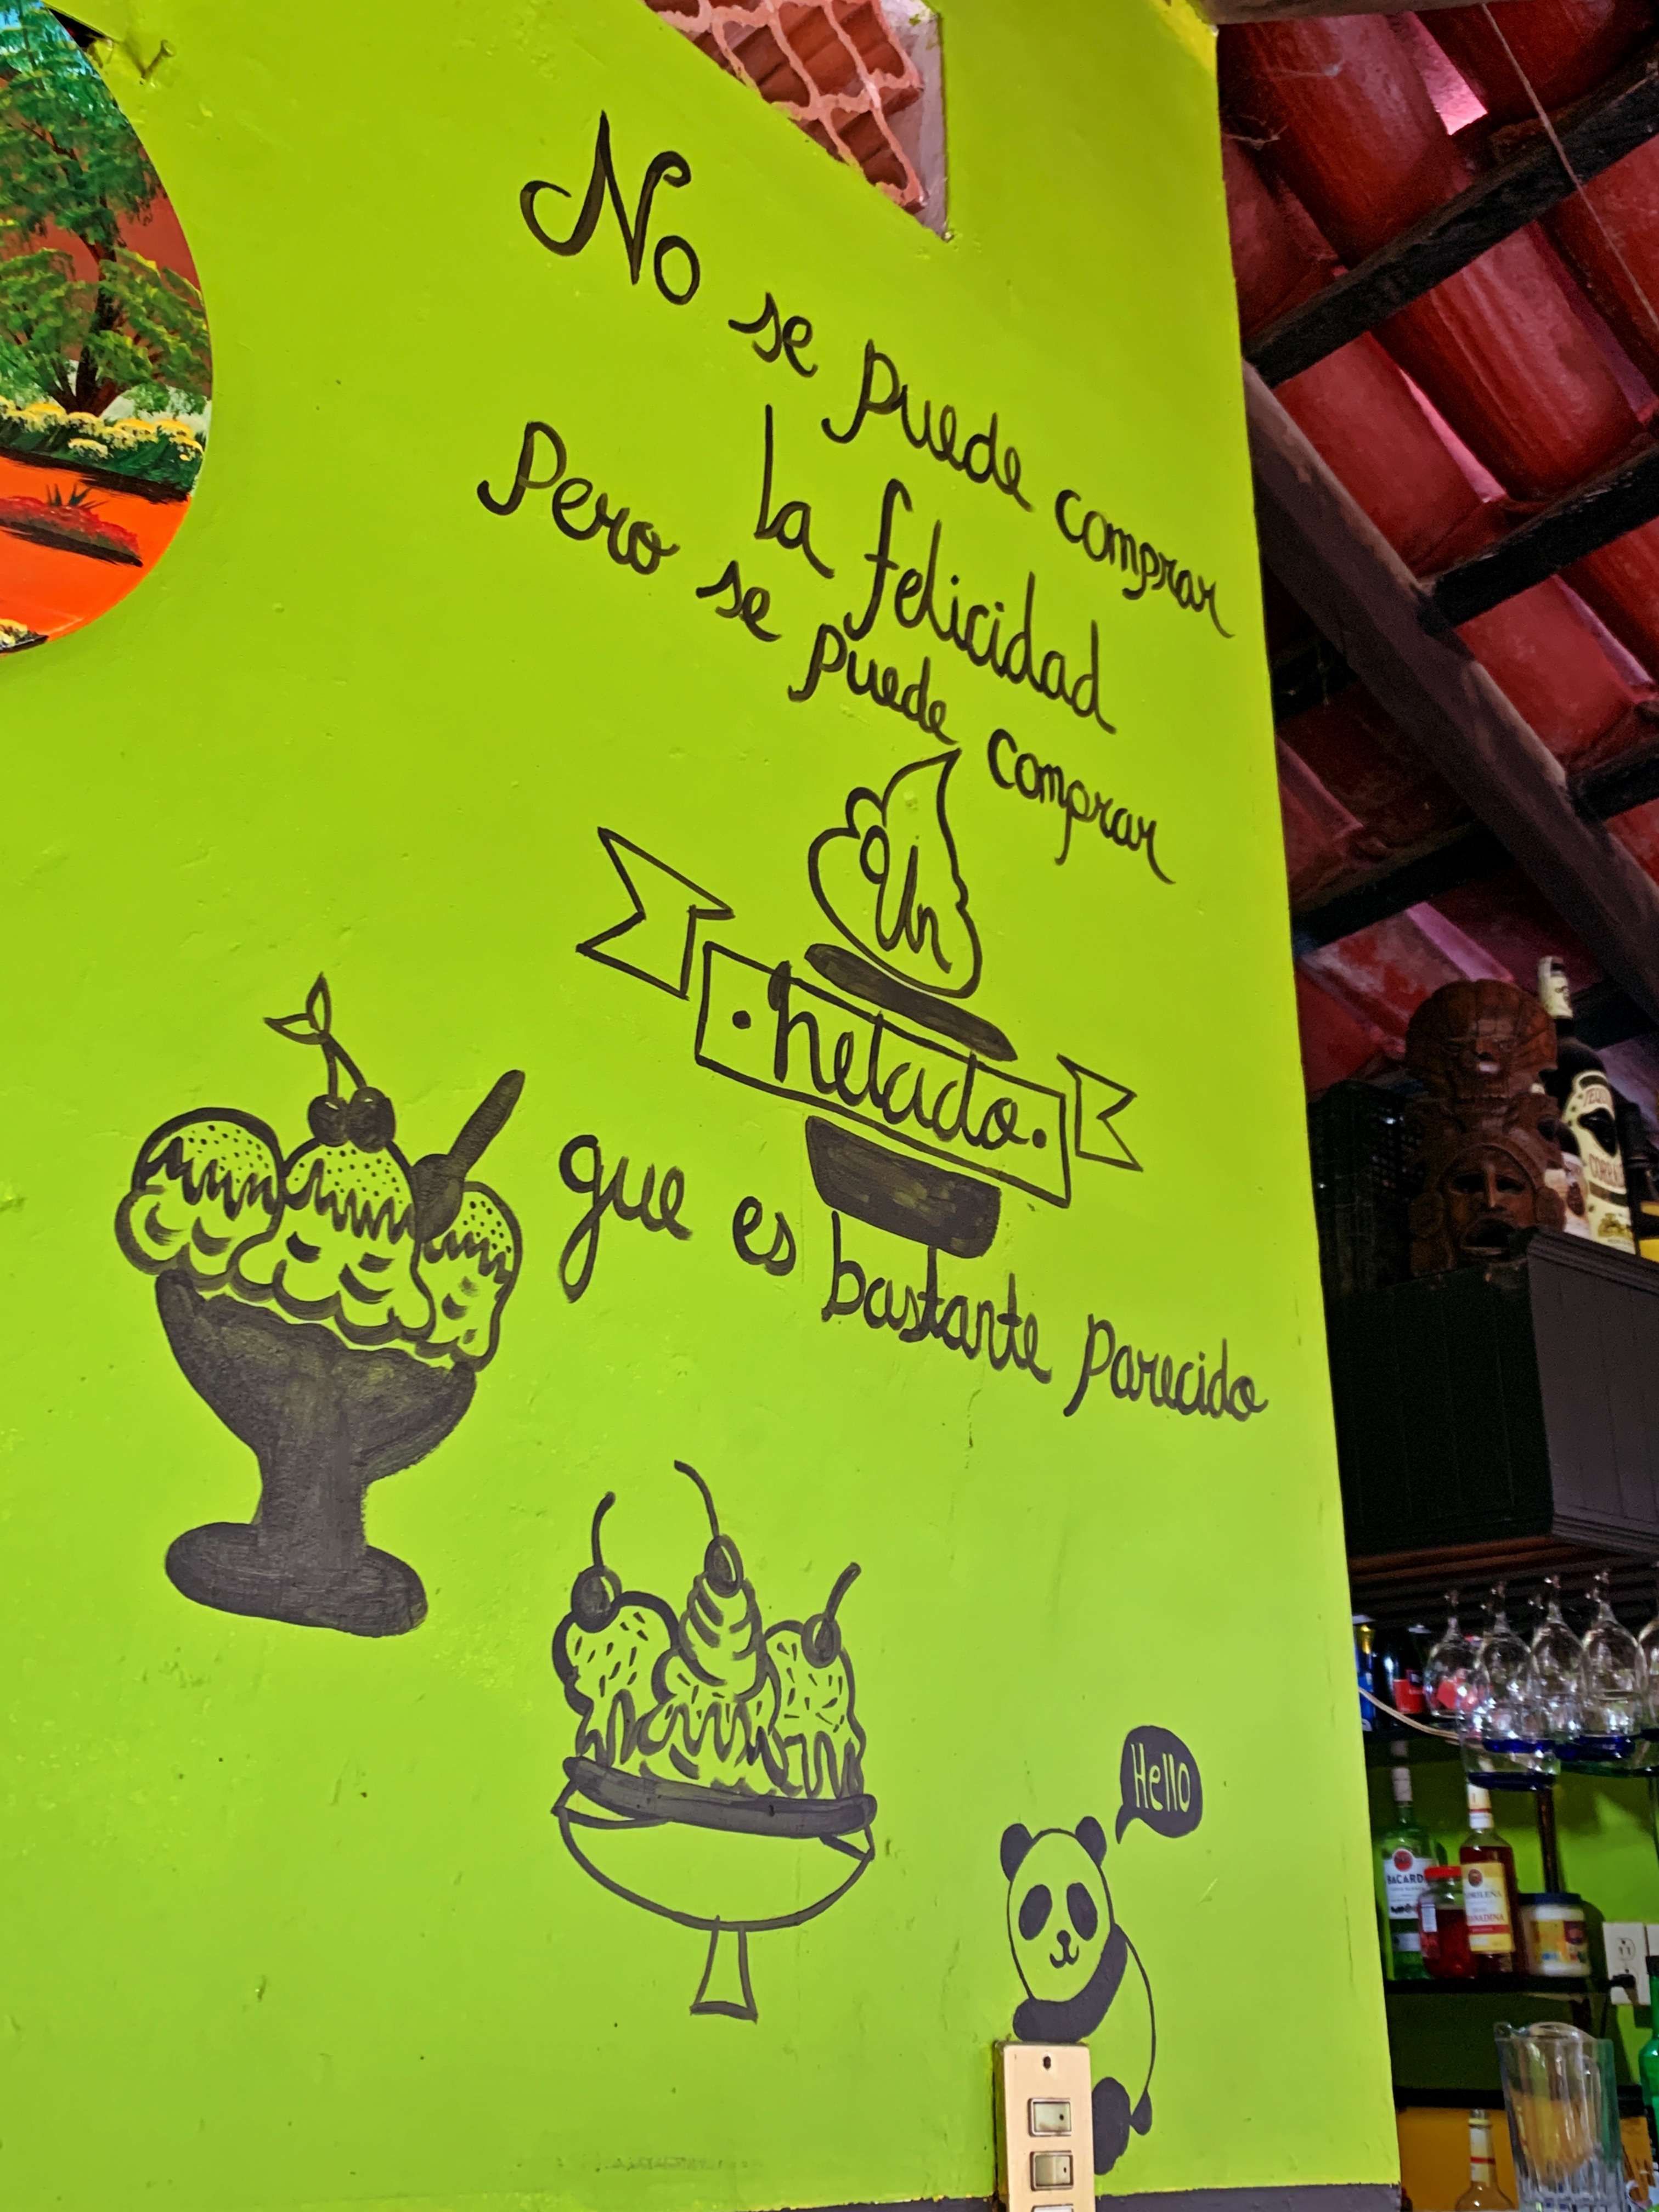 No se puede comprar
la felicidad
Pero se puede comprar
Un
• helado •
que es bastante parecido
Hello
TEQUILA
BACARDI